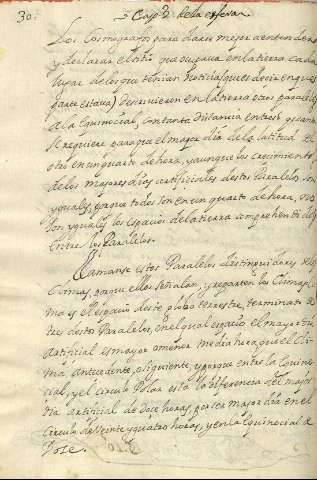 30.
Cap.º 2 de la esfera
Los Cosmographos para darse mejor a entender
y declarar el sitio que ocupava en la tierra cada
lugar de los que tenian noticia (que es decir en que
parte estava) descrivieron en la tierra otros paralelos
a la Equinocial, con tanta distancia entre si, quanta
se requiere para que el mayor dia de la latitud del
otro en un quarto de hora, y aunque los crecimientos
de los mayores dias artificiales destos Paralelos son
yguales, porque todos son en un quarto de hora, no
son yguales los espacios de la tierra comprehendidos
entre los Paralelos.
Llamanse estos Paralelos distinguidores de
Climas, porque ellos señalan, y reparten los Climas, Clima
es el espacio deste globo terrestre, terminado de
tres destos Paralelos, en el qual espacio el mayor dia
artificial es mayor o menor media hora que el Clima
antecedente, o siguiente, y porque entre la Equinocial,
y el circulo Polar esta la diferencia del mayor
dia artificial de doce horas, por ser mayor dia en el
circulo de veinte y quatro horas, y en la Equinocial de
doce.